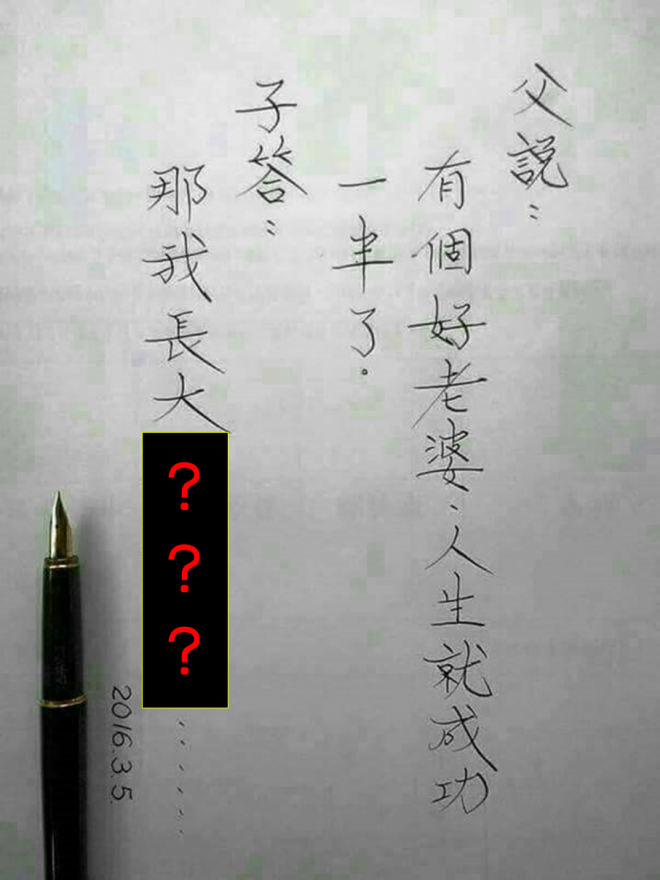 父說：
有個好老婆，人生就成功
一半了.
子答：
那我長大
???
.........
2016.3.5.